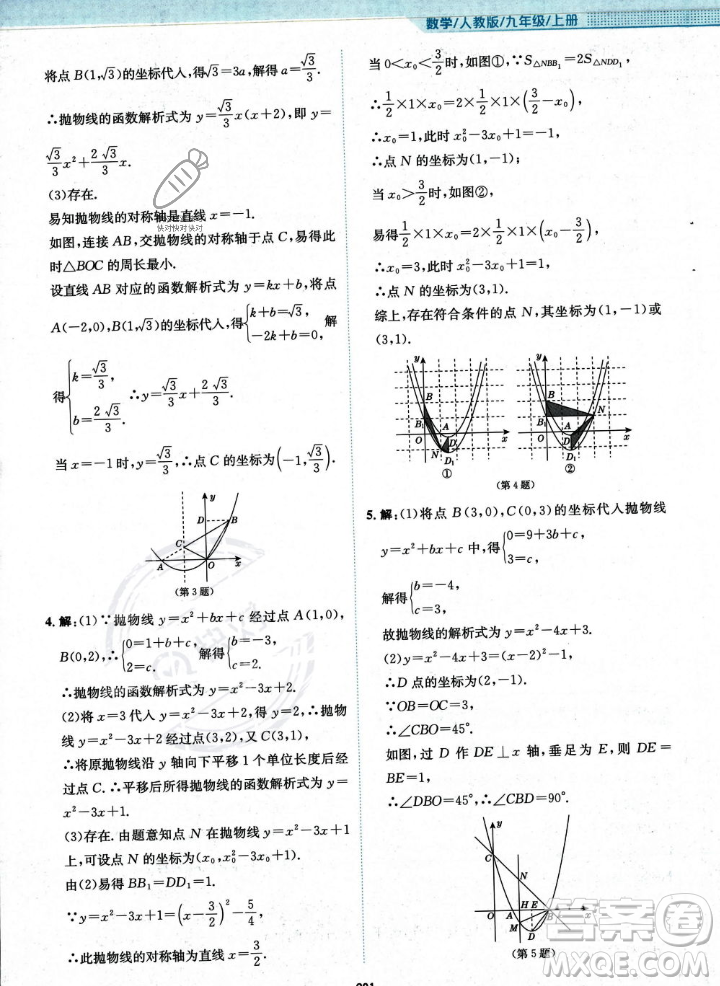 数学/人教版/九年级/上册
将点 B(1,√3)的坐标代入,得√3=3a,解得 a=√3/3.
∴抛物线的函数解析式为 y=√3/3 x(x+2),即 y=
√3/3 x²+2√3/3 x.
(3)存在.
易知抛物线的对称轴是直线 x=-1.
如图,连接 AB,交抛物线的对称轴于点 C,易得此
时△BOC 的周长最小.
设直线 AB 对应的函数解析式为 y=kx+b,将点
A(-2,0),B(1,√3)的坐标代入,得{k+b=√3, -2k+b=0, 解
得{k=√3/3, b=2√3/3. ∴y=√3/3 x+2√3/3.
当 x=-1 时,y=√3/3,∴点 C 的坐标为(-1,√3/3).
y
D
B
C
A
O
x
(第 3 题)
4. 解:(1)∵抛物线 y=x²+bx+c 经过点 A(1,0),
B(0,2),∴{0=1+b+c, 2=c. 解得{b=-3, c=2.
∴抛物线的函数解析式为 y=x²-3x+2.
(2)将 x=3 代入 y=x²-3x+2,得 y=2,∴抛物线
y=x²-3x+2 经过点(3,2),又 C(3,1),
∴将原抛物线沿 y 轴向下平移 1 个单位长度后经
过点 C.∴平移后所得抛物线的函数解析式为 y=
x²-3x+1.
(3)存在. 由题意知点 N 在抛物线 y=x²-3x+1
上,可设点 N 的坐标为(x₀,x₀²-3x₀+1),
由(2)易得 BB₁=DD₁=1.
∵y=x²-3x+1=(x-3/2)²-5/4,
∴此抛物线的对称轴为直线 x=3/2.
当 0<x₀<3/2时,如图①,∵S△NBB₁=2S△NDD₁,
∴1/2×1×x₀=2×1/2×1×(3/2-x₀).
∴x₀=1,此时 x₀²-3x₀+1=-1.
∴点 N 的坐标为(1,-1).
当 x₀>3/2时,如图②,
易得1/2×1×x₀=2×1/2×1×(x₀-3/2),
∴x₀=3,此时 x₀²-3x₀+1=1.
∴点 N 的坐标为(3,1).
综上,存在符合条件的点 N,其坐标为(1,-1)或
(3,1).
y
B
B₁
O
A
D
N
D₁
x
①
y
B
B₁
N
O
A
D
D₁
x
②
(第 4 题)
5. 解:(1)将点 B(3,0),C(0,3)的坐标代入抛物线
y=x²+bx+c 中,得{0=9+3b+c, 3=c.
解得{b=-4, c=3,
故抛物线的解析式为 y=x²-4x+3.
(2)y=x²-4x+3=(x-2)²-1,
∴D 点的坐标为(2,-1).
∵OB=OC=3,
∴∠CBO=45°.
如图,过 D 作 DE⊥x 轴,垂足为 E,则 DE=
BE=1.
∴∠DBO=45°,∴∠CBD=90°.
y
C
N
O
A
H
E
B
x
M
D
(第 5 题)
快对快对快对
答案卷
MXQE.COM